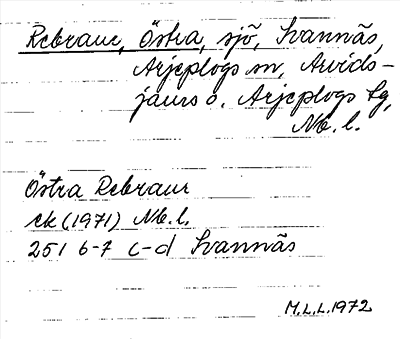 Rebraur, Östra, sjö, Svannäs,
Arjeplogs sn, Arvids-
jaurs o. Arjeplogs tg,
Nb. l.
Östra Rebraur
ek (1971) Nb. l.
251 6-7 c-d Svannäs
M.L.L. 1972